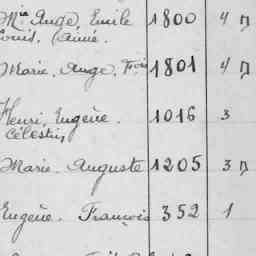 Mie Ange, Emile 1800 4 D
Louis, Aimé.
Marie, Ange, Frois 1801 4 D
Henri, Eugène. 1016 3
Célestin,
Marie, Auguste 1205 3 D
Eugène. François 352 1